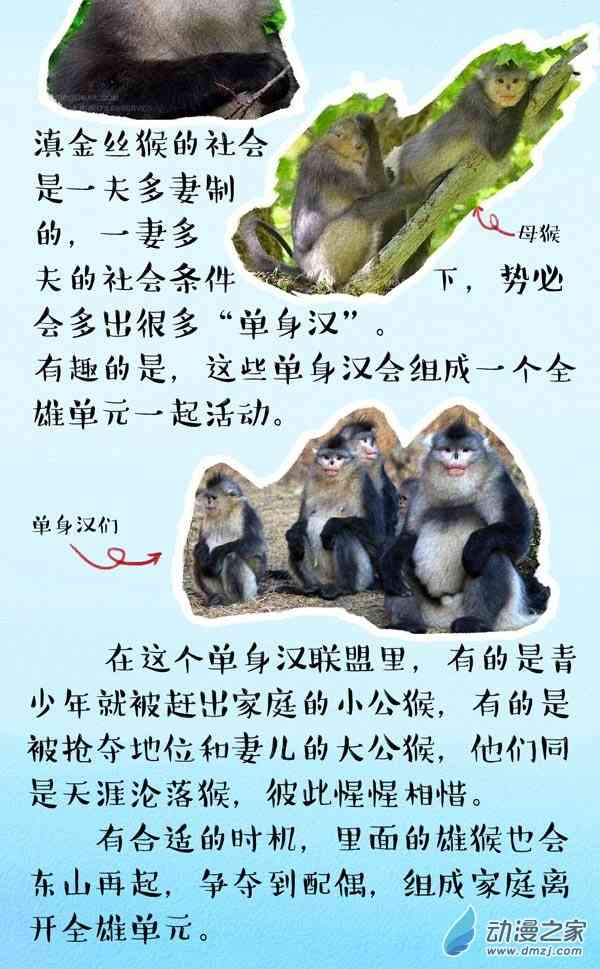 滇金丝猴的社会
是一夫多妻制
的，一妻多
夫的社会条件下，势必
会多出很多“单身汉”。
有趣的是，这些单身汉会组成一个全
雄单元一起活动。
母猴
单身汉们
在这个单身汉联盟里，有的是青
少年就被赶出家庭的小公猴，有的是
被抢夺地位和妻儿的大公猴，他们同
是天涯沦落猴，彼此惺惺相惜。
有合适的时机，里面的雄猴也会
东山再起，争夺到配偶，组成家庭离
开全雄单元。
动漫之家
www.dmzj.com